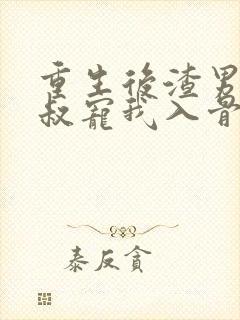 重生後渣男
叔寵我入骨
泰反貪